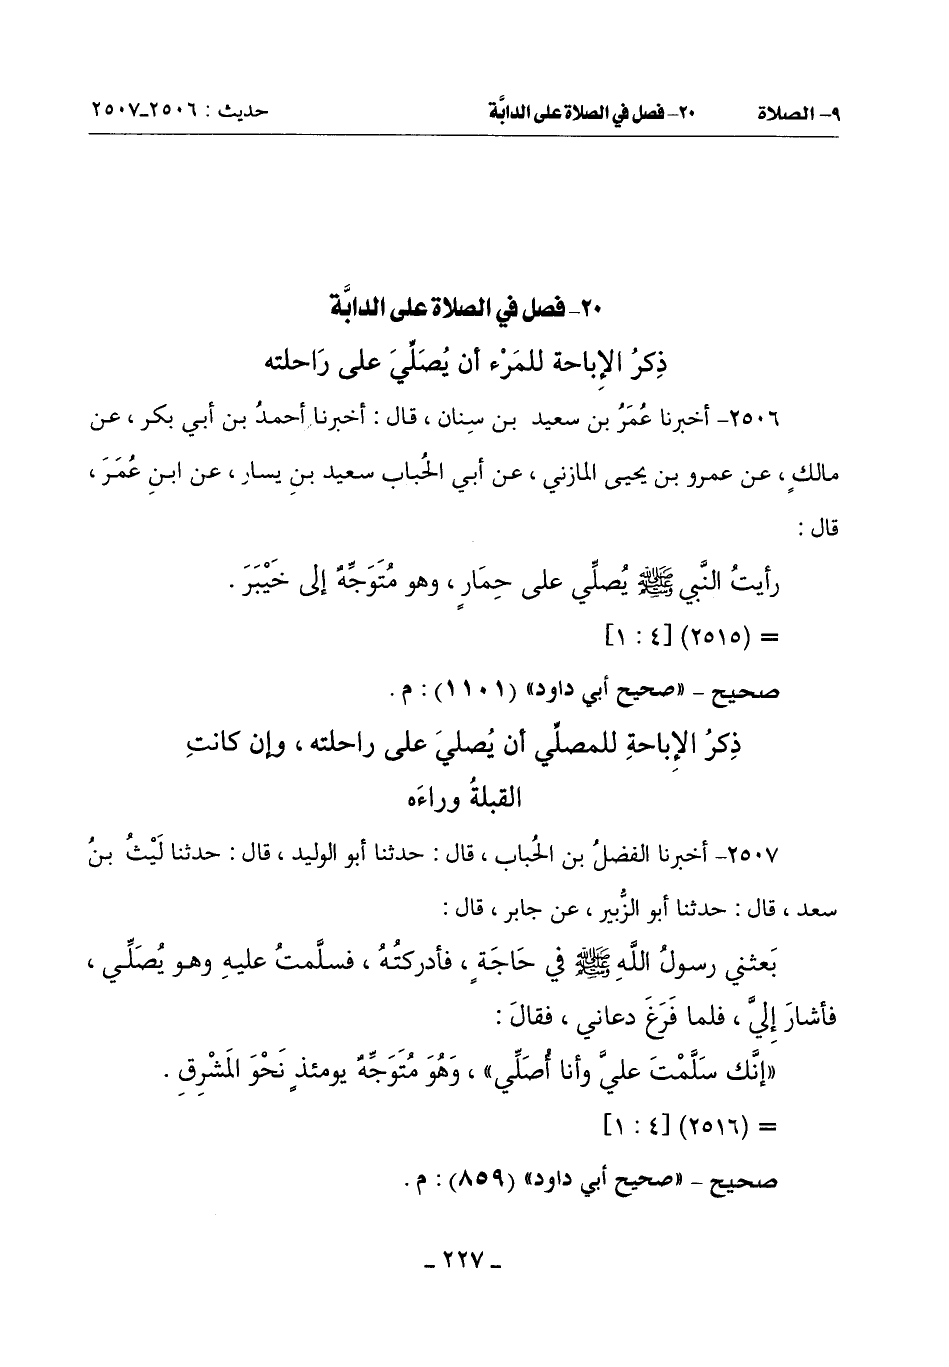 ٩- الصلاة ٢٠- فصل في الصلاة على الدابَّة حديث : ٢٥٠٦-٢٥٠٧
٢٠- فصل في الصلاة على الدابَّة
ذِكرُ الإِباحة للمَرْء أن يُصَلِّيَ على رَاحلته
٢٥٠٦- أخبرنا عُمَرُ بن سعيد بن سِنان ، قال : أخبرنا أحمدُ بن أبي بكر ، عن
مالكٍ ، عن عمرو بن يحيى المازني ، عن أبي الحُباب سعيد بنِ يسار ، عن ابنِ عُمَرَ ،
قال :
رأيتُ النَّبي ﷺ يُصلِّي على حِمَارٍ ، وهو مُتَوَجِّهٌ إلى خَيْبَرَ .
= (٢٥١٥) [٤ : ١]
صحيح - «صحيح أبي داود» (١١٠١) : م .
ذِكرُ الإِباحةِ للمصلِّي أن يُصليَ على راحلته ، وإن كانتِ
القبلةُ وراءَه
٢٥٠٧- أخبرنا الفضلُ بن الحُباب ، قال : حدثنا أبو الوليد ، قال : حدثنا لَيْثُ بنُ
سعد ، قال : حدثنا أبو الزُّبير ، عن جابر ، قال :
بَعثني رسولُ اللَّهِ ﷺ في حَاجَةٍ ، فأدركتُهُ ، فسلَّمتُ عليهِ وهو يُصَلِّي ،
فأشارَ إِليَّ ، فلما فَرَغَ دعاني ، فقالَ :
«إنَّك سَلَّمْتَ عليَّ وأنا أُصَلِّي» ، وَهُوَ مُتَوَجِّهٌ يومئذٍ نَحْوَ المَشْرِقِ .
= (٢٥١٦) [٤ : ١]
صحيح - «صحيح أبي داود» (٨٥٩) : م .
- ٢٢٧ -